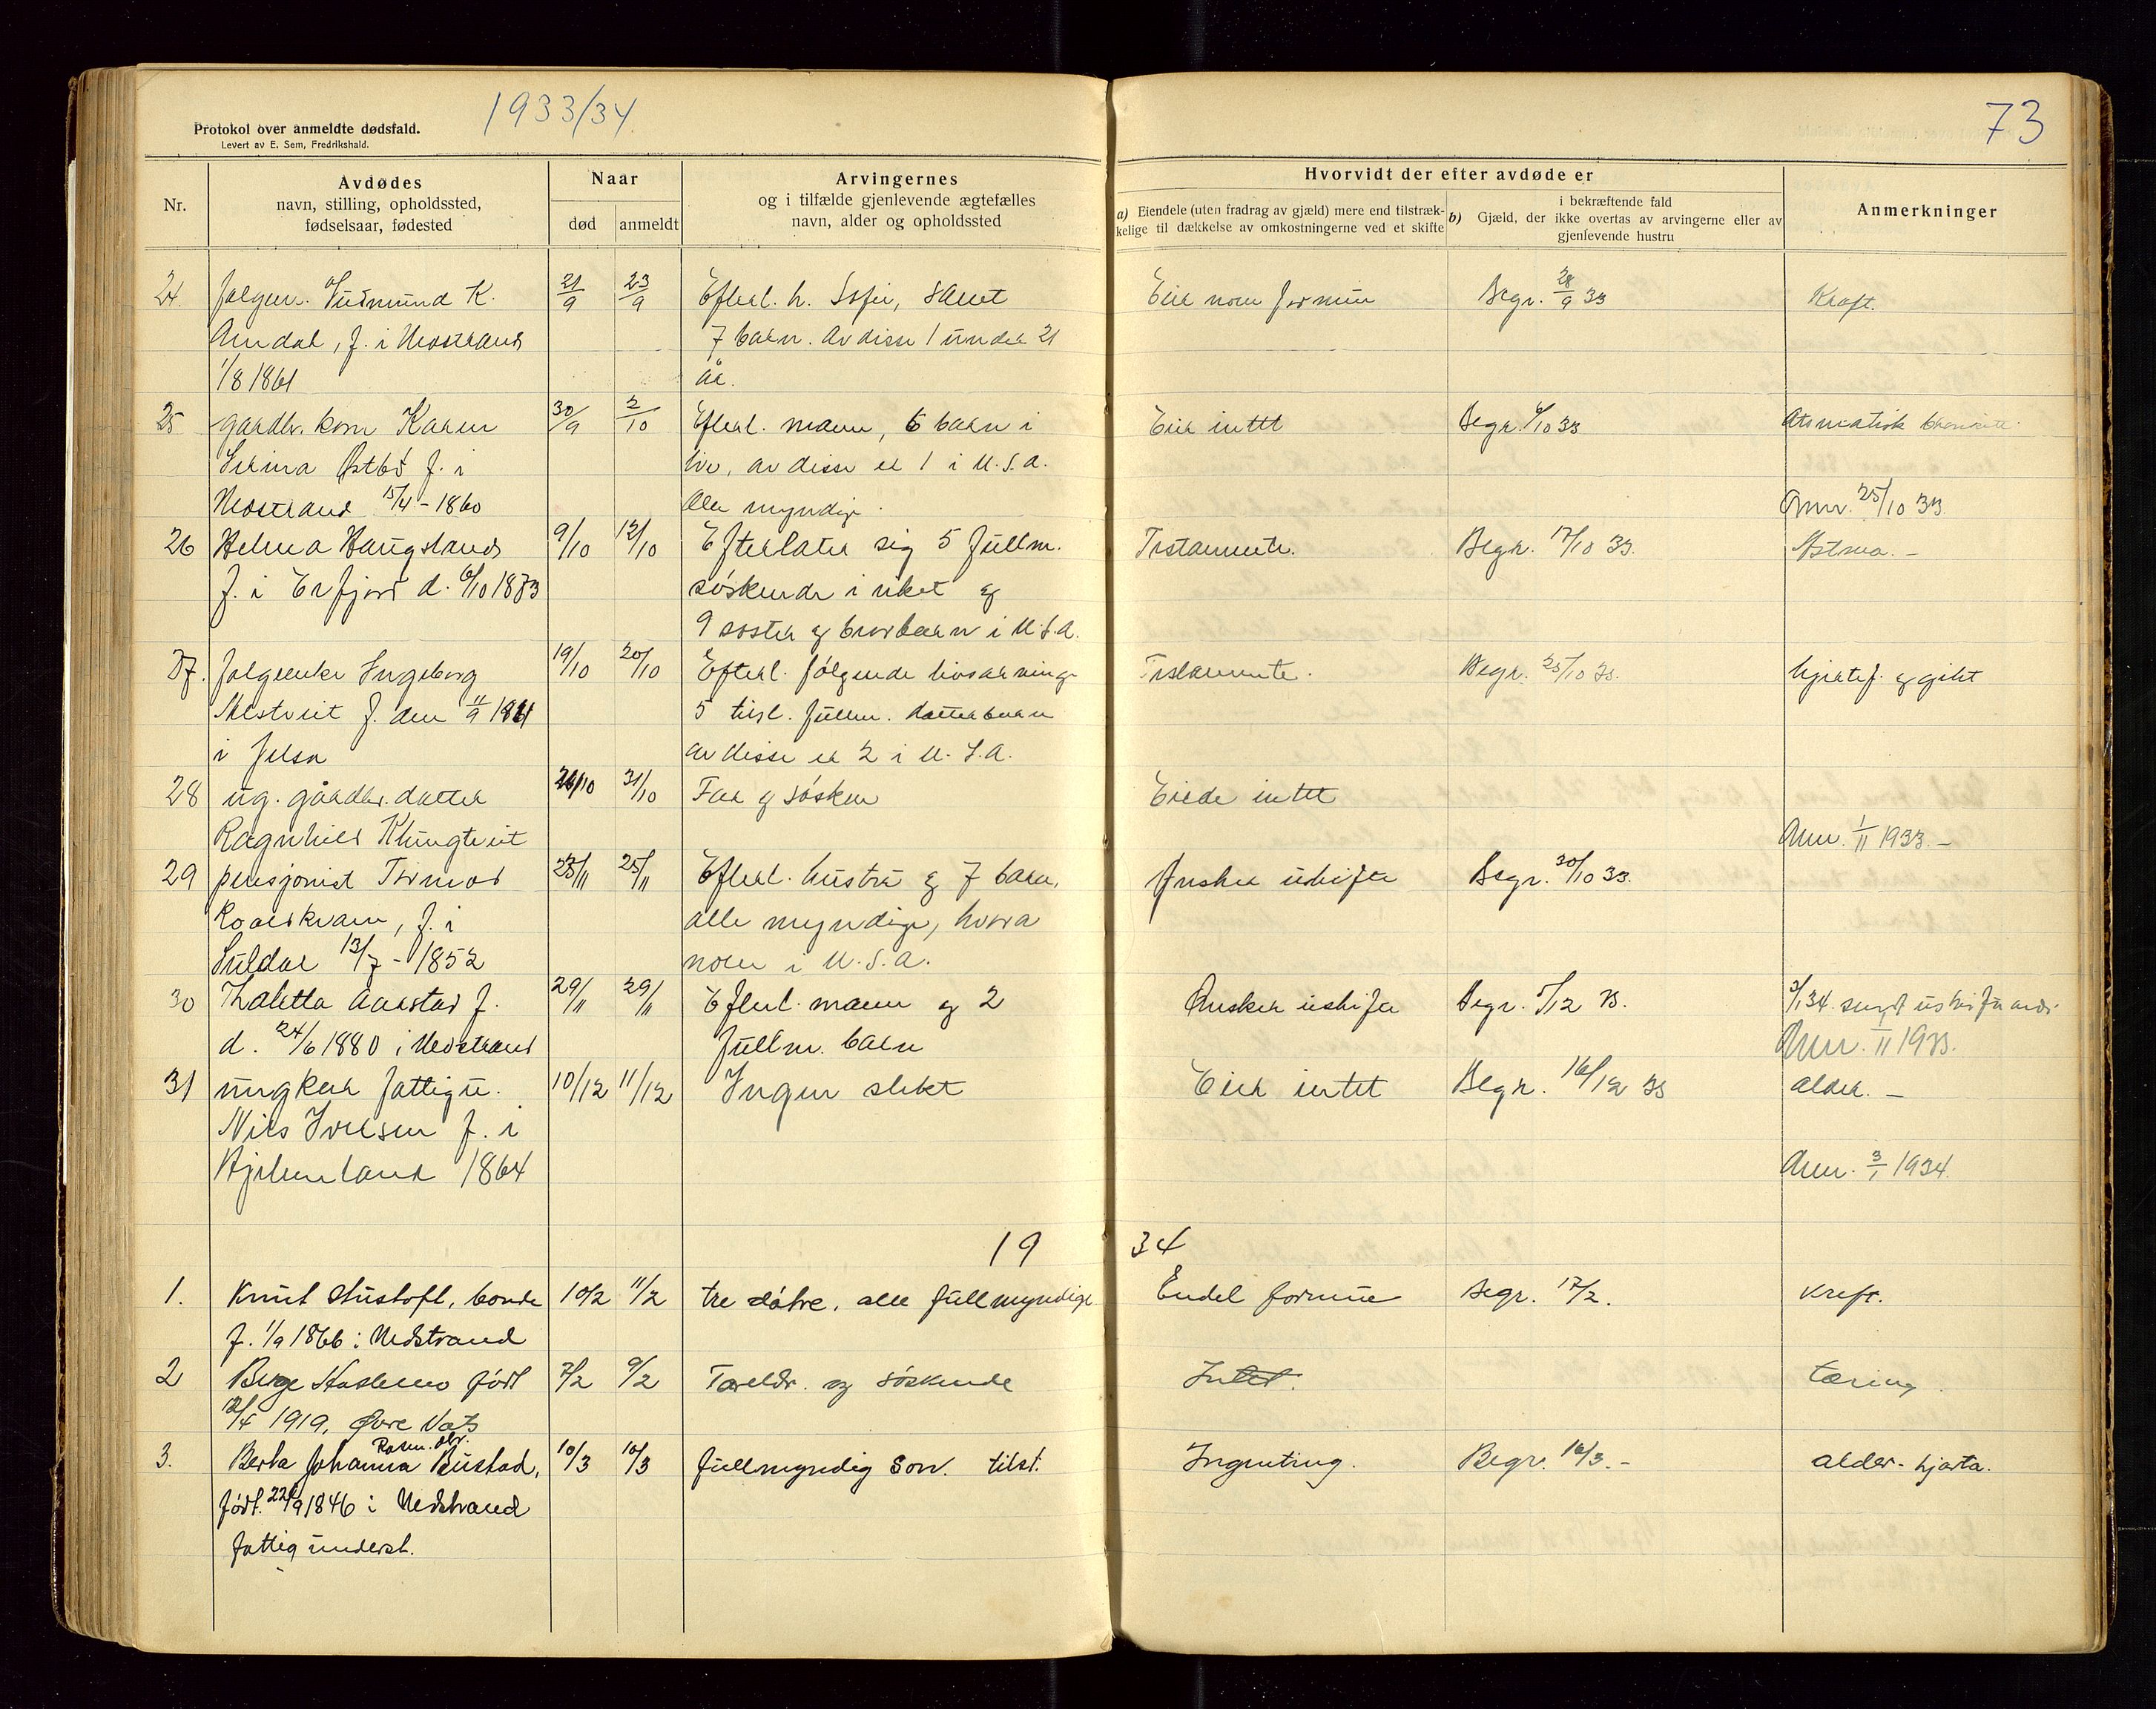 1933/34
73
Protokol over anmeldte dødsfald.
Levert av E. Sem, Fredrikshald.
Nr.
Avdødes
navn, stilling, opholdssted,
fødselsaar, fødested
Naar
død
anmeldt
Arvingernes
og i tilfælde gjenlevende ægtefælles
navn, alder og opholdssted
Hvorvidt der efter avdøde er
a) Eiendele (uten fradrag av gjæld) mere end tilstræk-
kelige til dækkelse av omkostningerne ved et skifte
b) Gjæld, der i bekræftende fald
ikke overtas av arvingerne eller av
gjenlevende hustru
Anmerkninger
24. Gudmund K. 21/9 23/9 Efterl. h. Sofie, samt Eier noen formue Begr. 28/9 33 Kræft.
Amdal, f. i Nedstrand 7 barn. Av disse 1 under 21
1/8 1861 år.
25 gaardbr. kone Karen 30/9 2/10 Efterl. mann, 6 barn i Eier intet Begr. 6/10 33
Serina Østbø f. i liv, av disse er 1 i U.S.A.
Nedstrand 15/4 - 1860 Alle myndige. Anm. 25/10 33.
26 Helena Haugsland 9/10 12/10 Efterlater sig 5 fullm. Testamente. Begr. 17/10 33. Astma. -
f. i Erfjord d. 6/10 1873 søskende i riket og
9 søster og brorbarn i U.S.A.
27. Ingeborg 19/10 20/10 Efterl. følgende livsarving. Testamente. Begr. 25/10 33. hjertef. og gikt
f. den 11/9 1841 5 fullm. datterbarn
i Jelsa av disse er 2 i U.S.A.
28 ug. gårdbr. datter 26/10 31/10 Far og søsken Eiede intet
Ragnhild Klungtveit Anm. 1/11 1933. -
29 pensjonist Tormod 23/11 25/11 Efterl. hustru og 7 barn, Ønsker uskifte Begr. 30/10 33.
Roaldkvam, f. i alle myndige, hvorav
Suldal 13/7 - 1852 noen i U.S.A.
30 Thaletta Aarstad f. 29/11 29/11 Efterl. mann og 2 Ønsker uskifte Begr. 5/12 33. 3/1 34. uskifte
d. 24/6 1880 i Nedstrand fullm. barn Anm. 1933.
31 ungkar fattigu. 10/12 11/12 Ingen slekt Eier intet Begr. 16/12 33 alder. -
Nils Iversen f. i
Hjelmeland 1864 Anm. 3/1 1934.
1934
1. Knut Austoft, bonde 10/2 11/2 tre døtre, alle fullmyndige Endel formue Begr. 17/2. Kreft.
f. 1/9 1866 i Nedstrand
2 Børge født 7/2 9/2 Foreldr. og søskende Intet. tæring.
1919, Øvre Vats
3. Berta Johanna Rasm. dtr. Bustad, 10/3 10/3 fullmyndig son. tilst. Ingenting. Begr. 16/3. - alder - hjarta.
født. 22/9 1846 i Nedstrand
fattig underst.